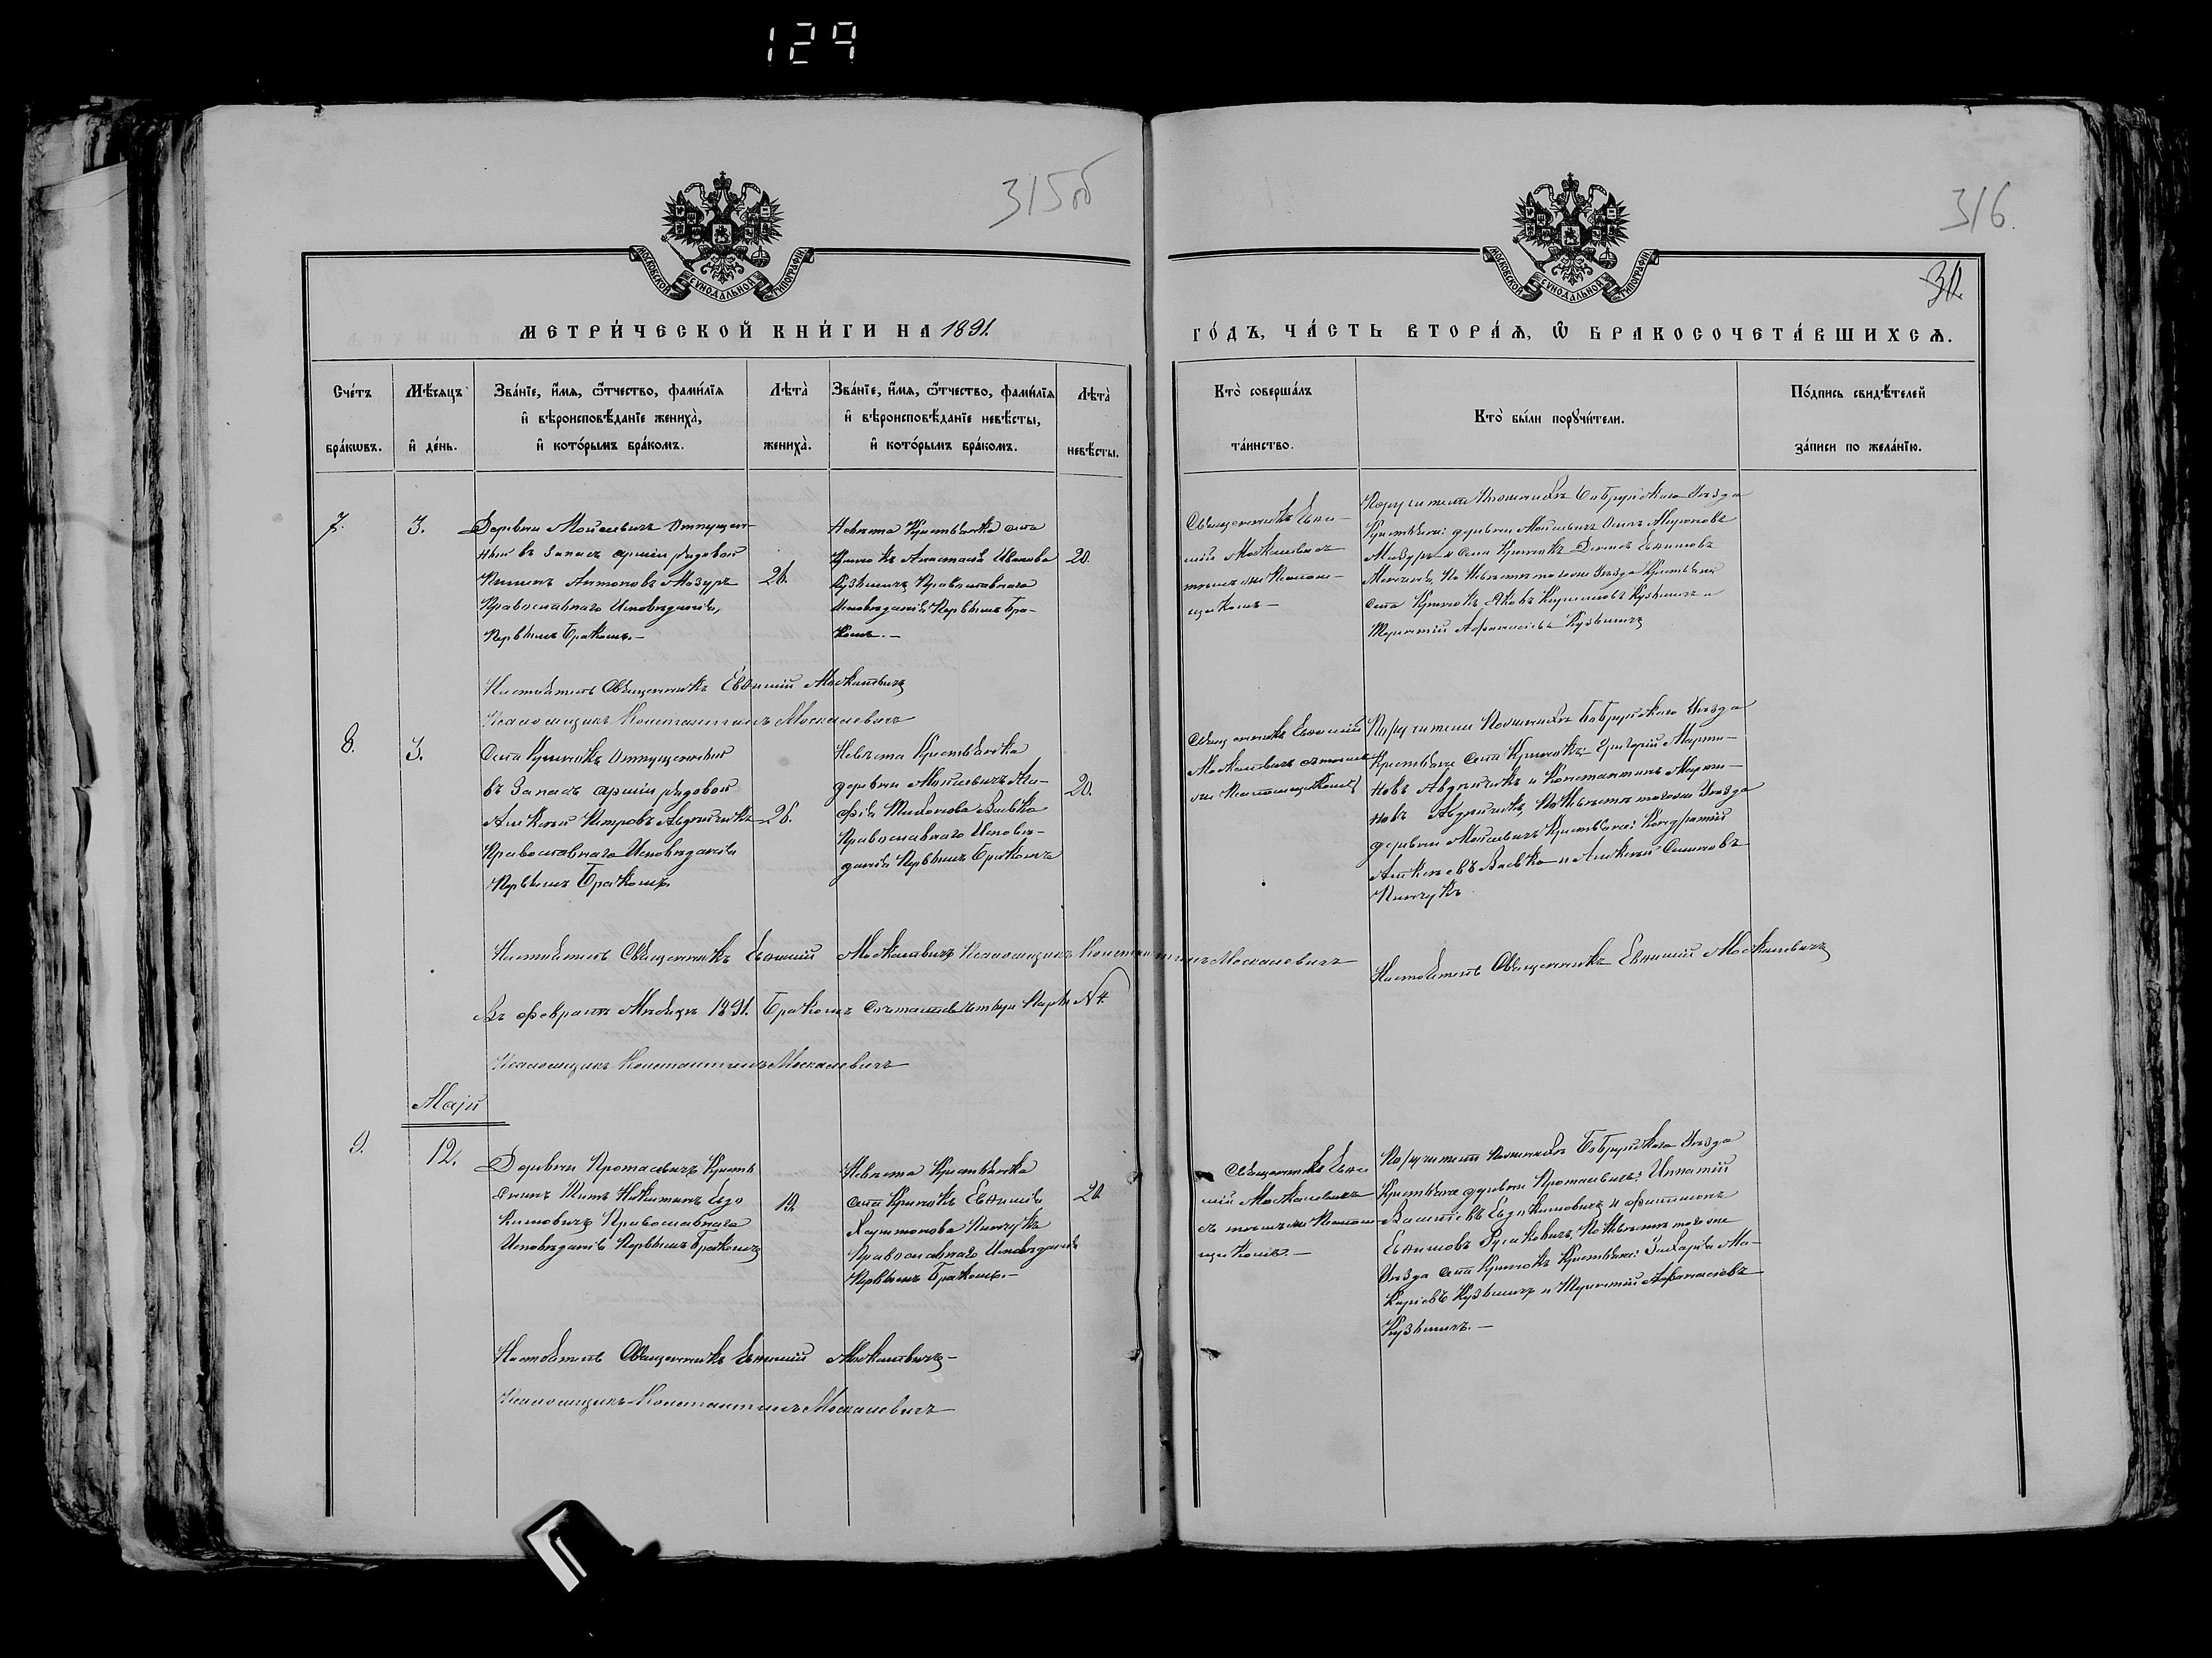 129
315об
316
30.
МОСКОВСКОЙ СѴНОДАЛЬНОЙ ТИПОГРАФІИ
МОСКОВСКОЙ СѴНОДАЛЬНОЙ ТИПОГРАФІИ
МЕТРИ́ЧЕСКОЙ КНИ́ГИ НА 1891.
ГО́ДЪ, ЧА́СТЬ ВТОРА́Ѧ, Ѽ БРАКОСОЧЕТА́ВШИХСѦ.
Сче́тъ
бра́кѡвъ.
Мѣ́сяцъ
и҆ де́нь.
Зва́нїе, и҆́мѧ, ѻ҆́тчество, фами́лїѧ
и҆ вѣроисповѣ́данїе жениха̀,
и҆ кото́рымъ бра́комъ.
Лѣта̀
жениха̀.
Зва́нїе, и҆́мѧ, ѻ҆́тчество, фами́лїѧ
и҆ вѣроисповѣ́данїе невѣ́сты,
и҆ кото́рымъ бра́комъ.
Лѣта̀
невѣ́сты.
Кто̀ соверша́лъ
та́инство.
Кто̀ бы́ли порꙋчи́тели.
По́дпись свидѣ́телей
за́писи по жела́нїю.
7.
3.
Деревни Мойсеевичъ отпущен-
ный въ запасъ арміи рядовой
Антоновъ Мазуръ
Православнаго Исповѣданія,
Первымъ Бракомъ.-
26.
Невѣста Крестьянка села
Крюкъ Анастасія Иванова
Кузьмичъ Православнаго
Исповѣданія Первымъ Бра-
комъ.-
20.
Священникъ Евѳи-
мій Москалевичъ
съ псалом-
щикомъ -
Поручители по женихѣ Бобруйского Уѣзда
Крестьяне: деревни Мойсеевичъ Осипъ
Мазуръ и села Евѳимовъ
По Невѣстѣ того же Уѣзда Крестьяне
села Яковъ Кузьмичъ и
Терентій Афанасіевъ Кузьмичъ
Настоятель Священникъ Евѳимій Москалевичъ
Псаломщикъ Константинъ Москалевичъ
8.
3.
Села отпущенный
въ запасъ арміи рядовой
Алексѣй Петровъ
Православнаго Исповѣданія
Первымъ Бракомъ.
26.
Невѣста Крестьянка
деревни Мойсеевичъ
Тихонова
Православнаго Исповѣ-
данія Первымъ Бракомъ
20.
Священникъ Евѳимій
Москалевичъ съ
псаломщикомъ
Поручители по женихѣ Бобруйского Уѣзда
Крестьяне села Григорій Марти-
новъ и Константинъ Марти-
новъ По Невѣстѣ того же Уѣзда
деревни Мойсеевичъ Крестьяне: Кондратій
Алексѣевъ и Алексѣй Семеновъ
Пинчукъ
Настоятель Священникъ Евѳимій Москалевичъ Псаломщикъ Константинъ Москалевичъ
Настоятель Священникъ Евѳимій Москалевичъ
Въ Февралѣ Мѣсяцѣ 1891. Бракомъ четыри Пары № 4.
Псаломщикъ Константинъ Москалевичъ
Маій
9.
12.
Деревни Протасевичъ Кресть
янинъ Титъ Никитинъ Евдо
кимовичъ Православнаго
Исповѣданія Первымъ Бракомъ
19.
Невѣста Крестьянка
села Евѳимія
Харитонова Пинчукъ
Православнаго Исповѣданія
Первымъ Бракомъ.-
20.
Священникъ Евѳи
мій Москалевичъ
съ псалом-
щикомъ.-
Поручители по женихѣ Бобруйского Уѣзда
Крестьяне деревни Протасевичъ: Игнатій
Василіевъ Евдокимовичъ и Филимонъ
Евѳимовъ Русаковичъ, По Невѣстѣ того же
Уѣзда села Крестьяне: Захарія Ма-
каріевъ Кузьмичъ и Терентій Афанасіевъ
Кузьмичъ.-
Настоятель Священникъ Евѳимій Москалевичъ-
Псаломщикъ Константинъ Москалевичъ